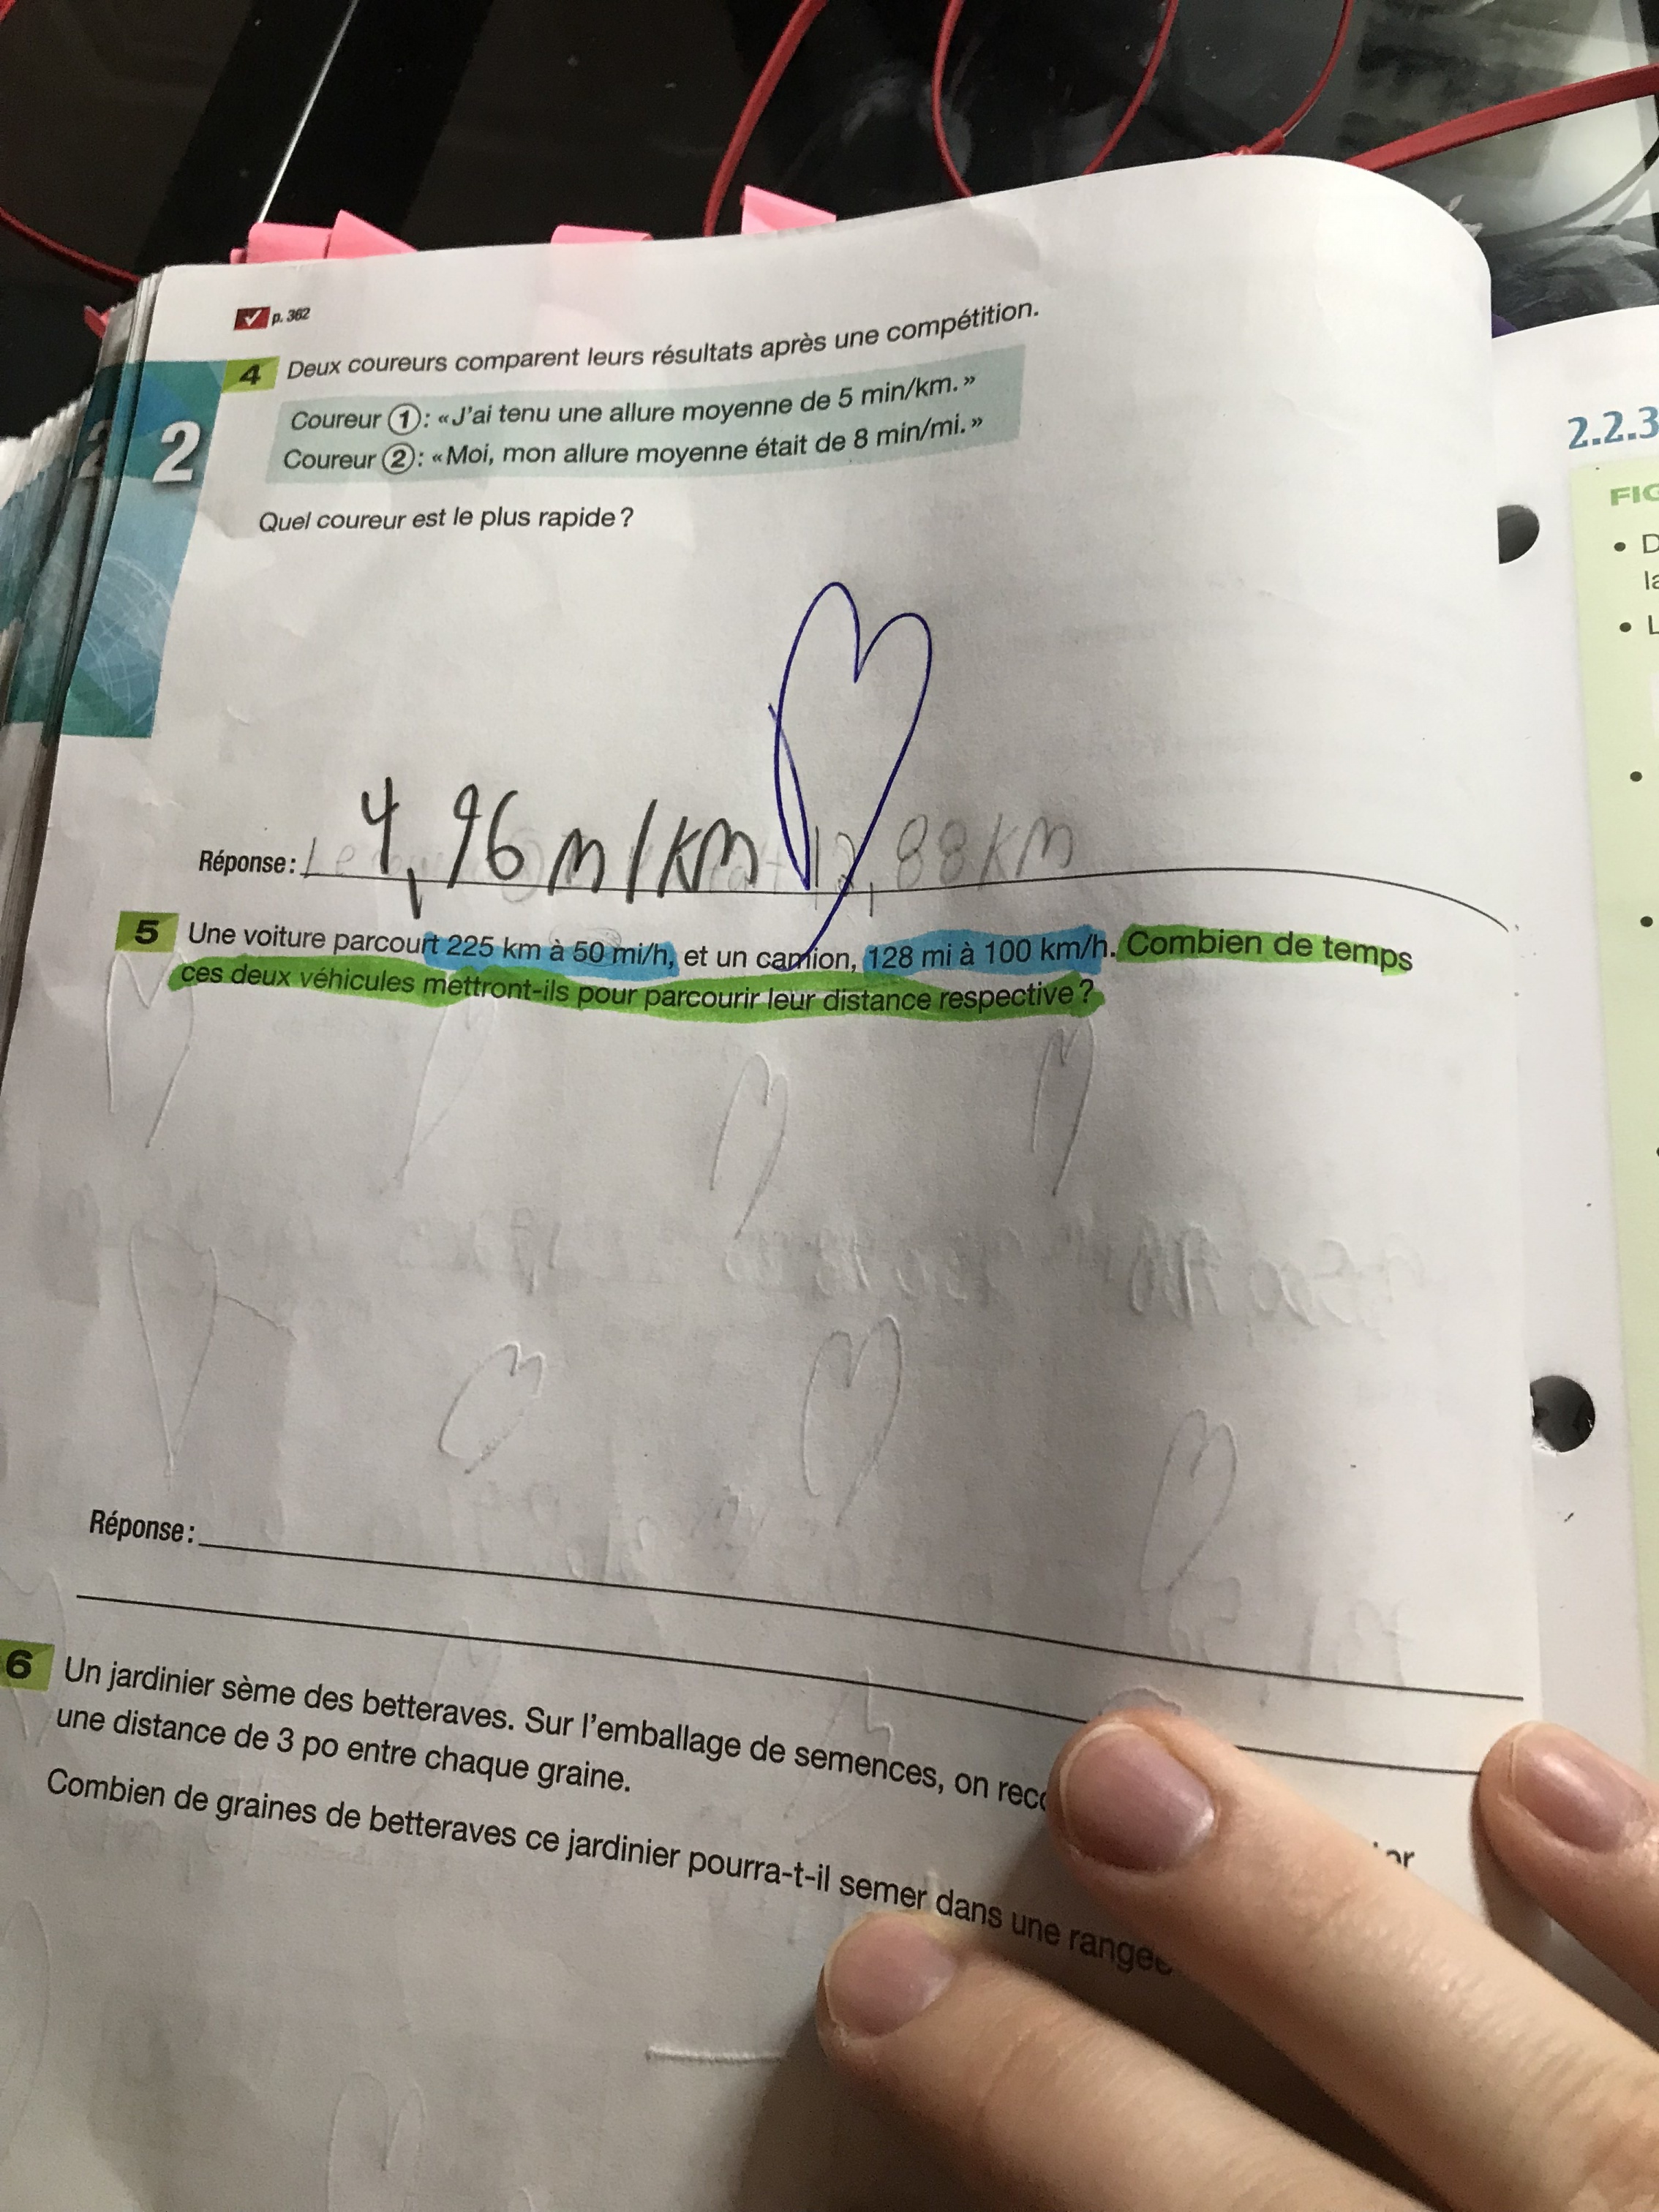 p. 362
4 Deux coureurs comparent leurs résultats après une compétition.
Coureur 1 : «J'ai tenu une allure moyenne de 5 min/km.»
Coureur 2 : «Moi, mon allure moyenne était de 8 min/mi.»
2 2
Quel coureur est le plus rapide?
Réponse: Le 4,96 m/km 12,88 km
5 Une voiture parcourt 225 km à 50 mi/h, et un camion, 128 mi à 100 km/h. Combien de temps
ces deux véhicules mettront-ils pour parcourir leur distance respective?
Réponse:
6 Un jardinier sème des betteraves. Sur l'emballage de semences, on
une distance de 3 po entre chaque graine.
Combien de graines de betteraves ce jardinier pourra-t-il semer dans une
2.2.3